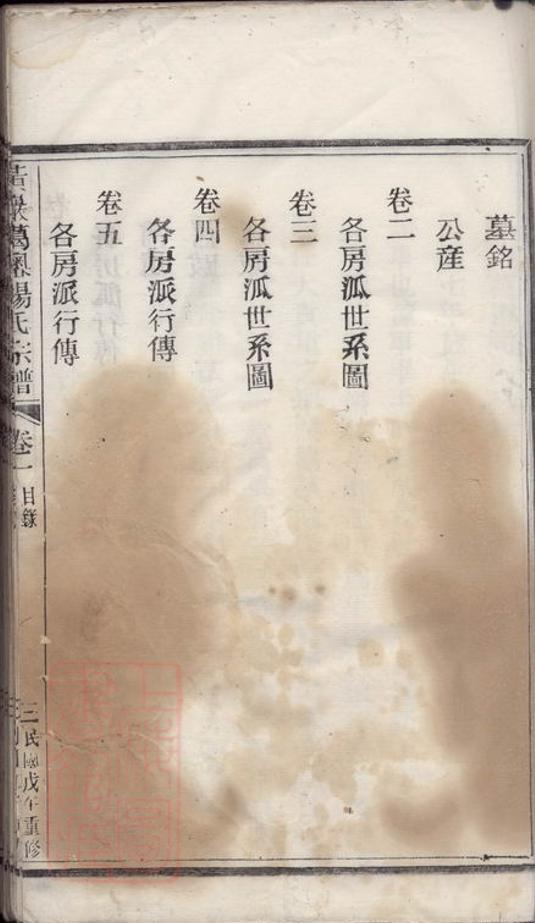 墓銘
公產
卷二
各房派世系圖
卷三
各房派世系圖
卷四
各房派行傳
卷五
各房派行傳
黃巖葛奧楊氏宗譜
卷一
目錄
三
民國戊午重修